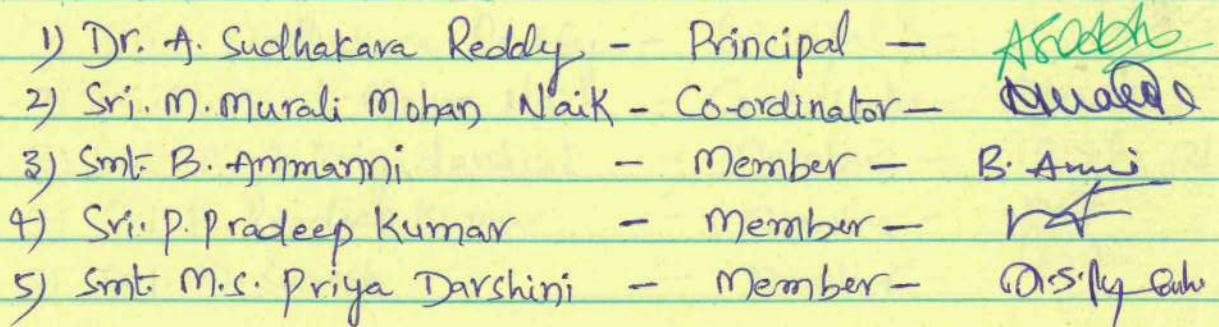 1) Dr. A. Sudhakara Reddy - Principal -
2) Sri. M. Murali Mohan Naik - Co-ordinator -
3) Smt. B. Ammanni - Member - B. Ammi
4) Sri. P. Pradeep Kumar - Member -
5) Smt M.S. Priya Darshini - Member -